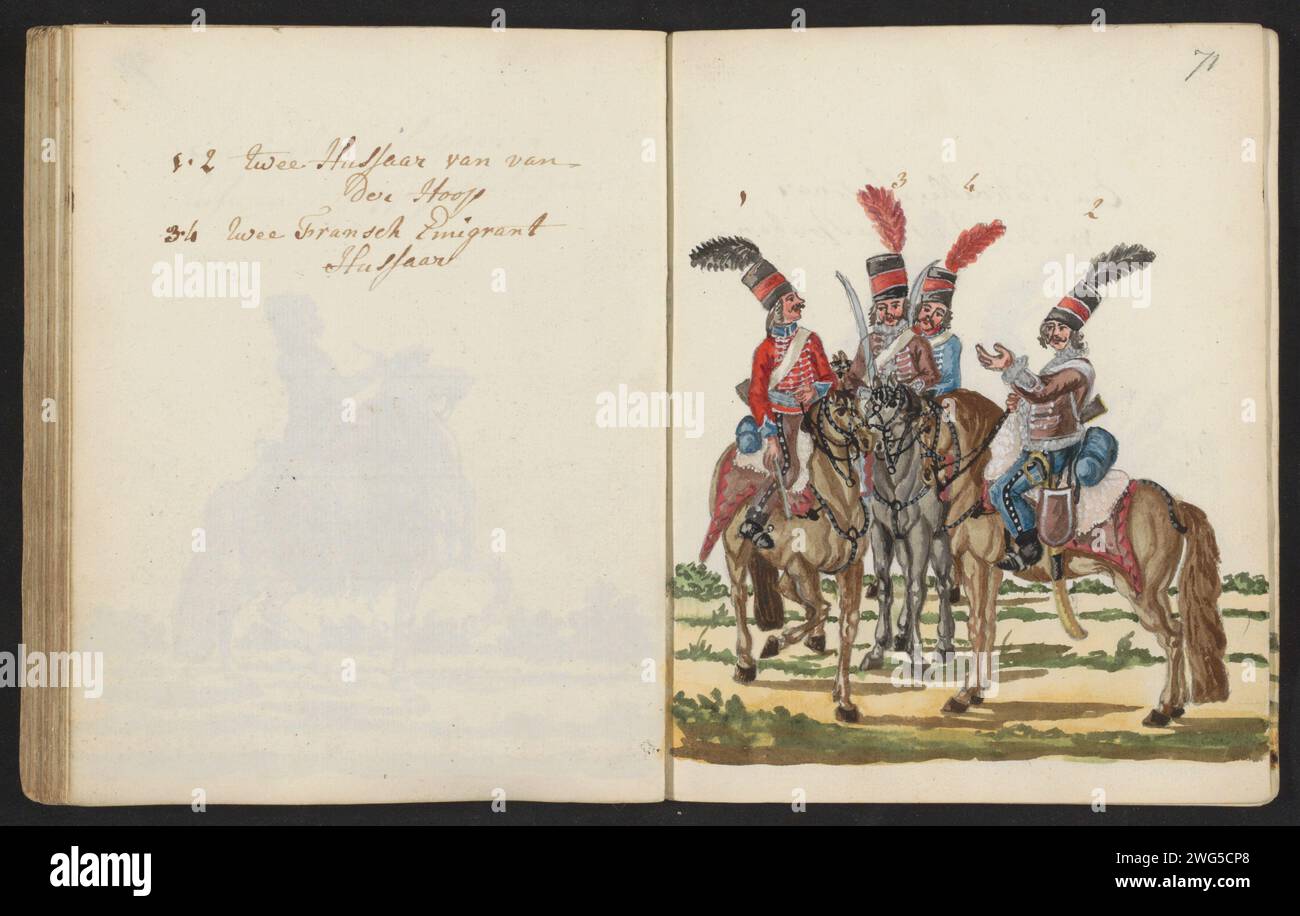 1. 2 twee Hussaar van van
Der Hoop
3.4 twee Fransch Emigrant
Hussaar
71
1
3
4
2
alamy
Image ID: 2WG5CP8
www.alamy.com